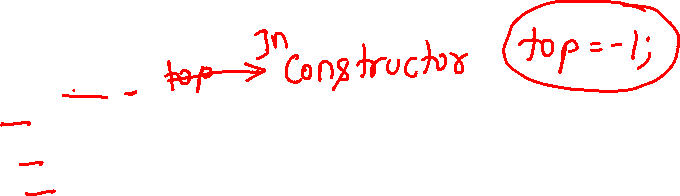 top → In Constructor top = -1;